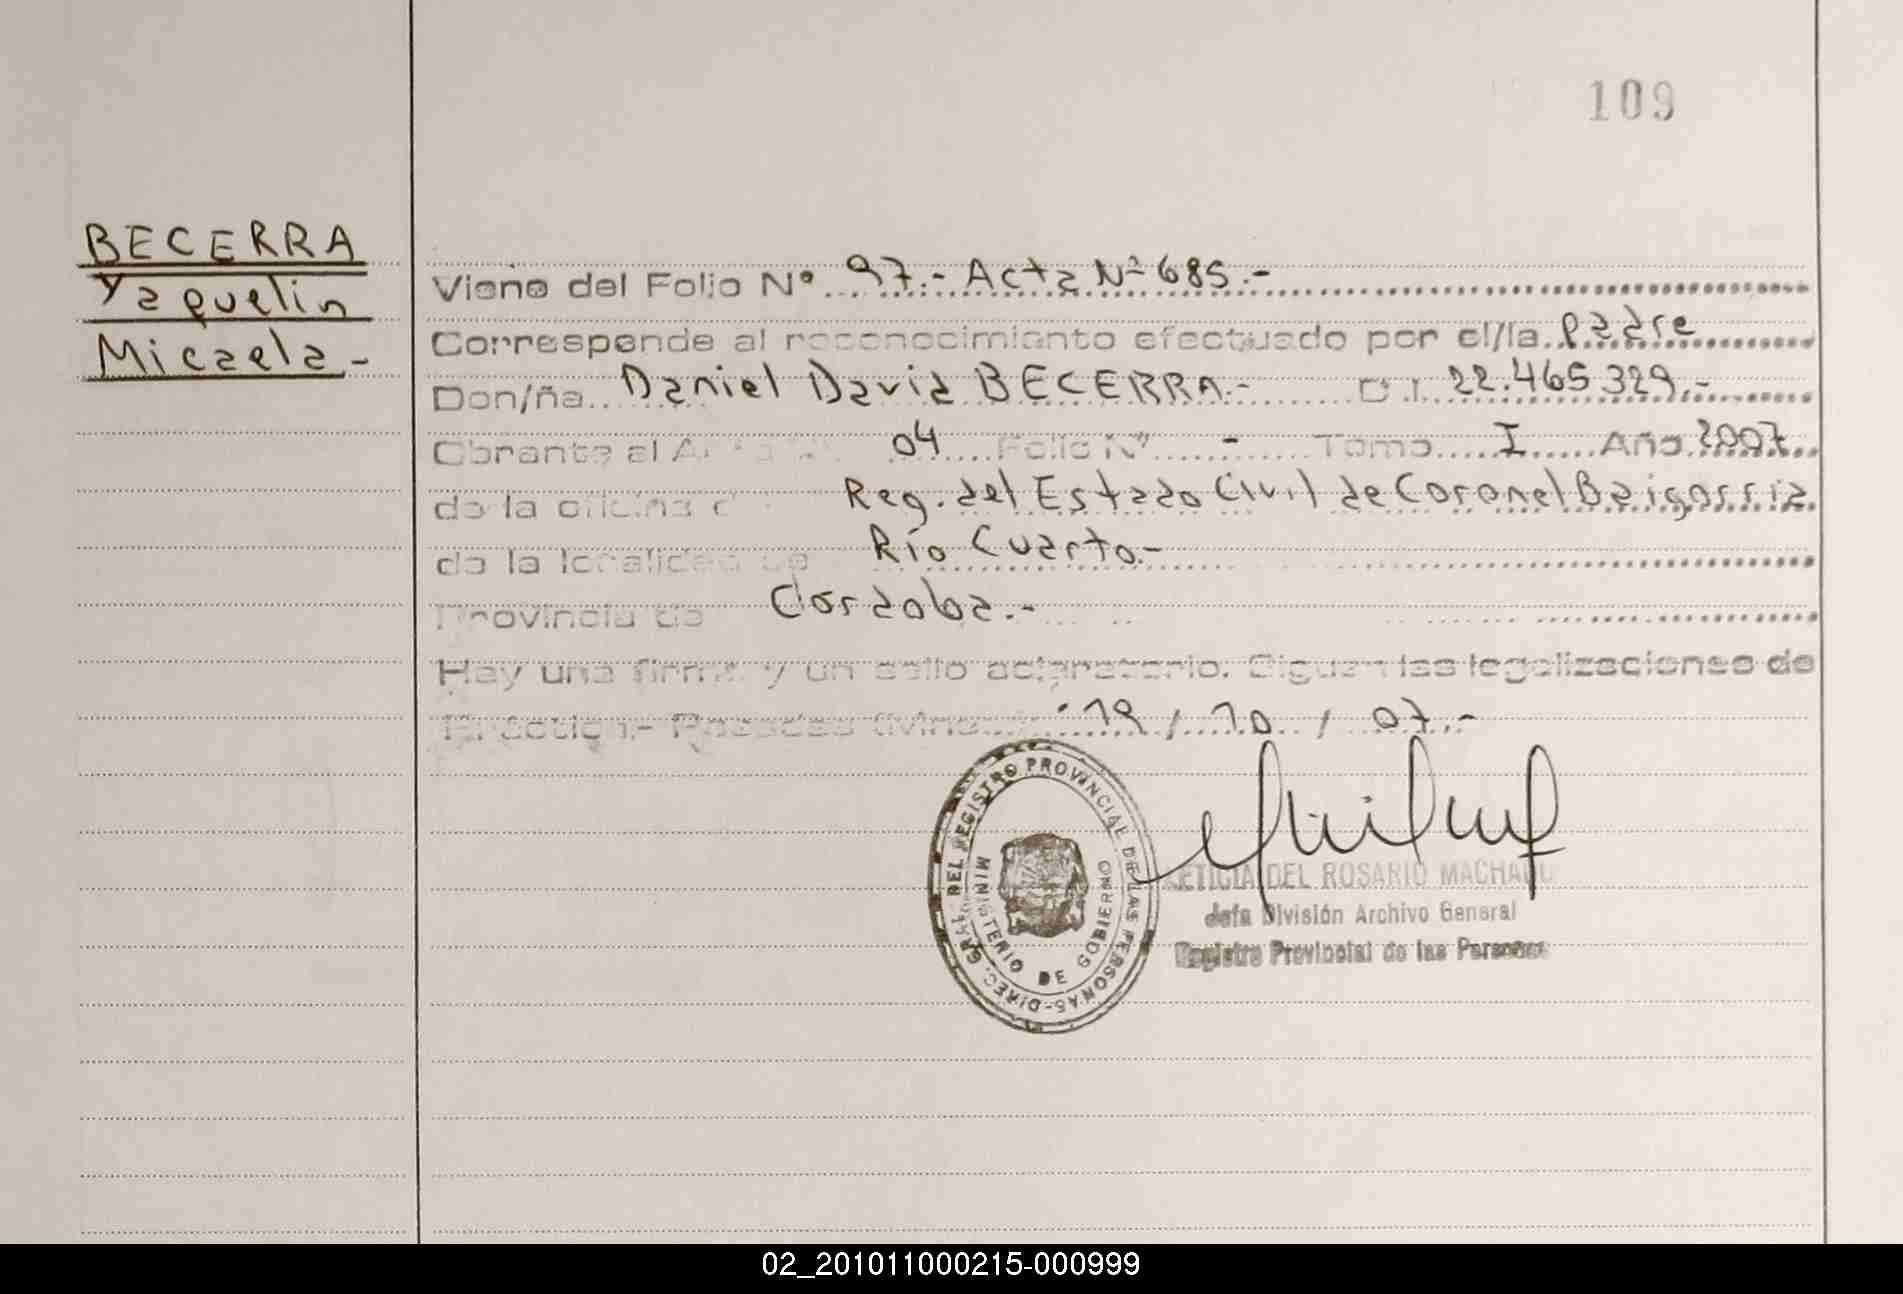 109
BECERRA
Yaquelin
Micaela-
Viene del Folio Nº 97.- Acta Nº 685.-
Corresponde al reconocimiento efectuado por el/la Padre
Don/ña Daniel David BECERRA.- D.I. 22.465.329.-
Obrante al Acta Nº 04 Folio Nº - Tomo I Año 2007
de la oficina Reg. del Estado Civil de Coronel Baigorria.
de la localidad de Río Cuarto.-
Provincia de Cordoba.-
Hay una firma y un sello aclaratorio. Siguen las legalizaciones de
Práctica.- Posadas 19 / 10 / 07.-
DIREC. GRAL. DEL REGISTRO PROVINCIAL DE LAS PERSONAS-
MINISTERIO DE GOBIERNO
LETICIA DEL ROSARIO MACHADO
Jefa División Archivo General
Registro Provincial de las Personas
02_201011000215-000999